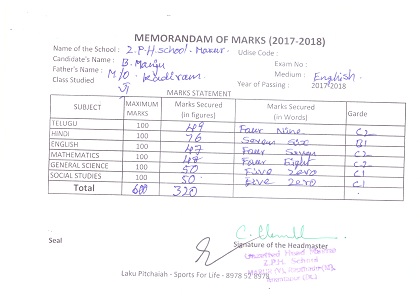 MEMORANDAM OF MARKS (2017-2018)
Name of the School : Z.P.H School. Udise Code :
Candidate's Name : B. Exam No :
Father's Name : Medium : English.
Class Studied VI Year of Passing : 2017-2018
MARKS STATEMENT
SUBJECT MAXIMUM MARKS Marks Secured (in figures) Marks Secured (in Words) Garde
TELUGU 100 49 Four Nine C2
HINDI 100 76 Seven Six B1
ENGLISH 100 47 Four Seven C2
MATHEMATICS 100 48 Four Eight C2
GENERAL SCIENCE 100 50 Five Zero C1
SOCIAL STUDIES 100 50 Five Zero C1
Total 600 320
Seal
Signature of the Headmaster
Z.P.H. School
Laku Pitchaiah - Sports For Life - 8978 52 8978